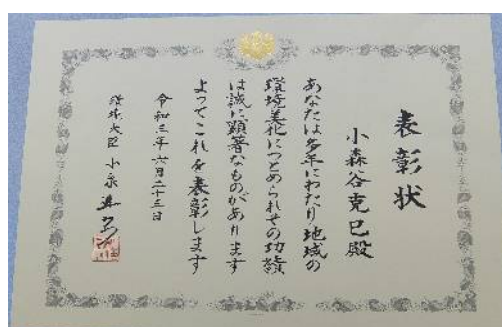 表彰状
小森谷克巳殿
あなたは多年にわたり地域の
環境美化につとめられその功績
は誠に顕著なものがあります
よってこれを表彰します
令和三年六月二十三日
環境大臣 小泉進次郎